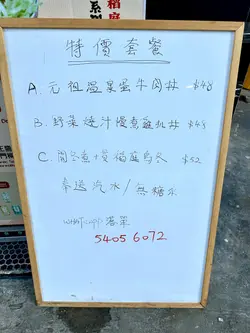 特價套餐
A. 元祖溫泉蛋牛肉丼 $48
B. 野菜燒汁慢煮雞扒丼 $48
$52
奉送汽水/無糖水
WHATSAPP 落單
5405 6072